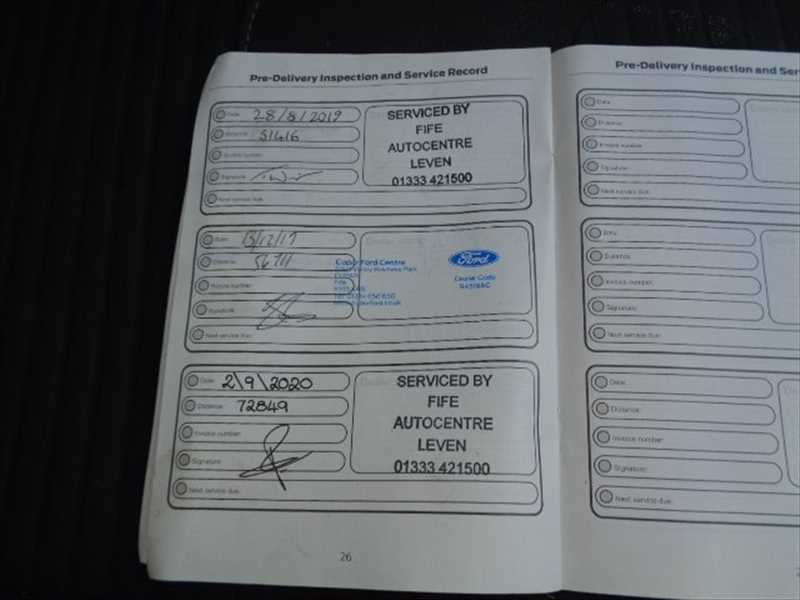 Pre-Delivery Inspection and Service Record
Date: 28/8/2019
Distance: 51416
Invoice number:
Signature:
Next service due:
SERVICED BY
FIFE
AUTOCENTRE
LEVEN
01333 421500
Date: 13/12/19
Distance: 56711
Invoice number:
Signature:
Next service due:
Cupar Ford Centre
Fife
Ford
Dealer Code
Date: 2\9\2020
Distance: 72849
Invoice number:
Signature:
Next service due:
SERVICED BY
FIFE
AUTOCENTRE
LEVEN
01333 421500
26
Pre-Delivery Inspection and Ser
Date:
Distance:
Invoice number:
Signature:
Next service due:
Date:
Distance:
Invoice number:
Signature:
Next service due:
Date:
Distance:
Invoice number:
Signature:
Next service due: